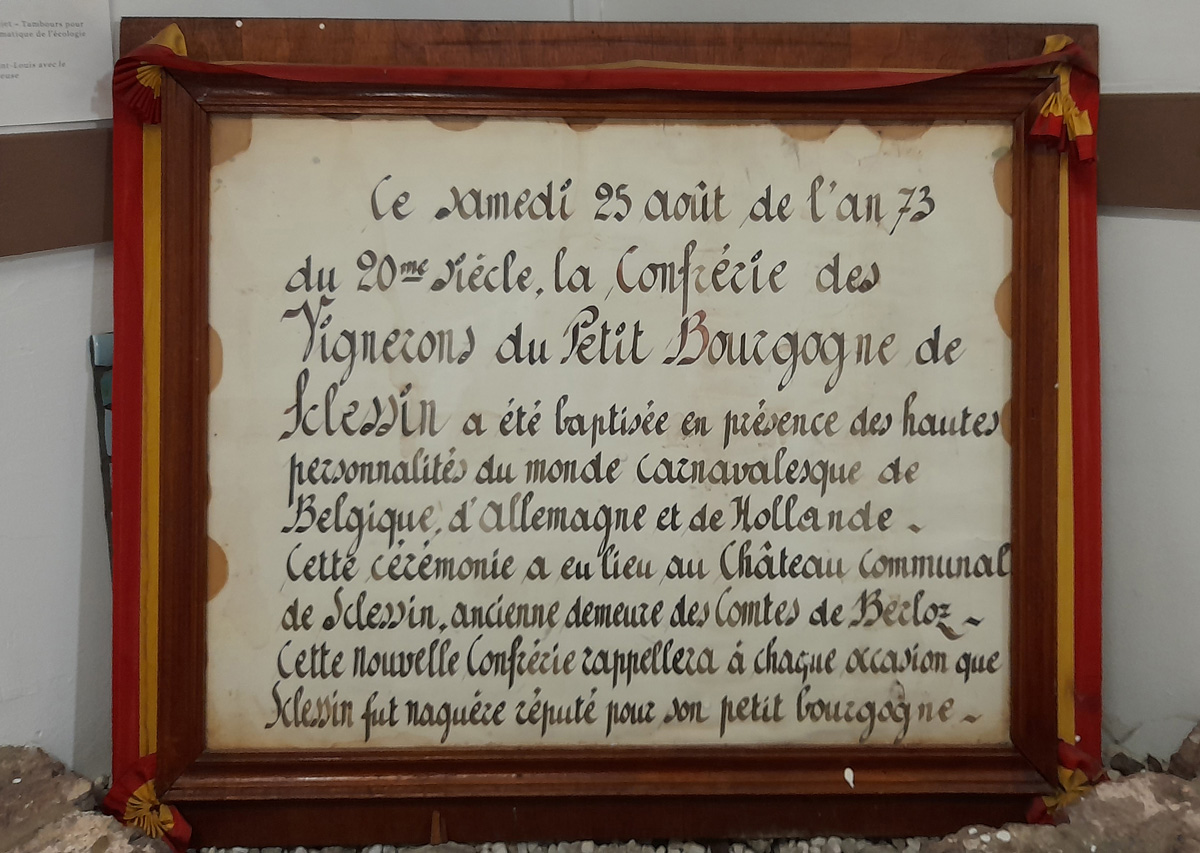 jet – Tambours pour
matique de l'écologie
nt-Louis avec le
euse
Ce samedi 25 août de l'an 73
du 20me siécle, la Confrérie des
Vignerons du Petit Bourgogne de
Sclessin a été baptisée en présence des hautes
personnalités du monde carnavalesque de
Belgique, d'Allemagne et de Hollande -
Cette cérémonie a eu lieu au Château communal
de Sclessin, ancienne demeure des Comtes de Berloz -
Cette nouvelle Confrérie rappellera á chaque occasion que
Sclessin fut naguére réputé pour son petit bourgogne -